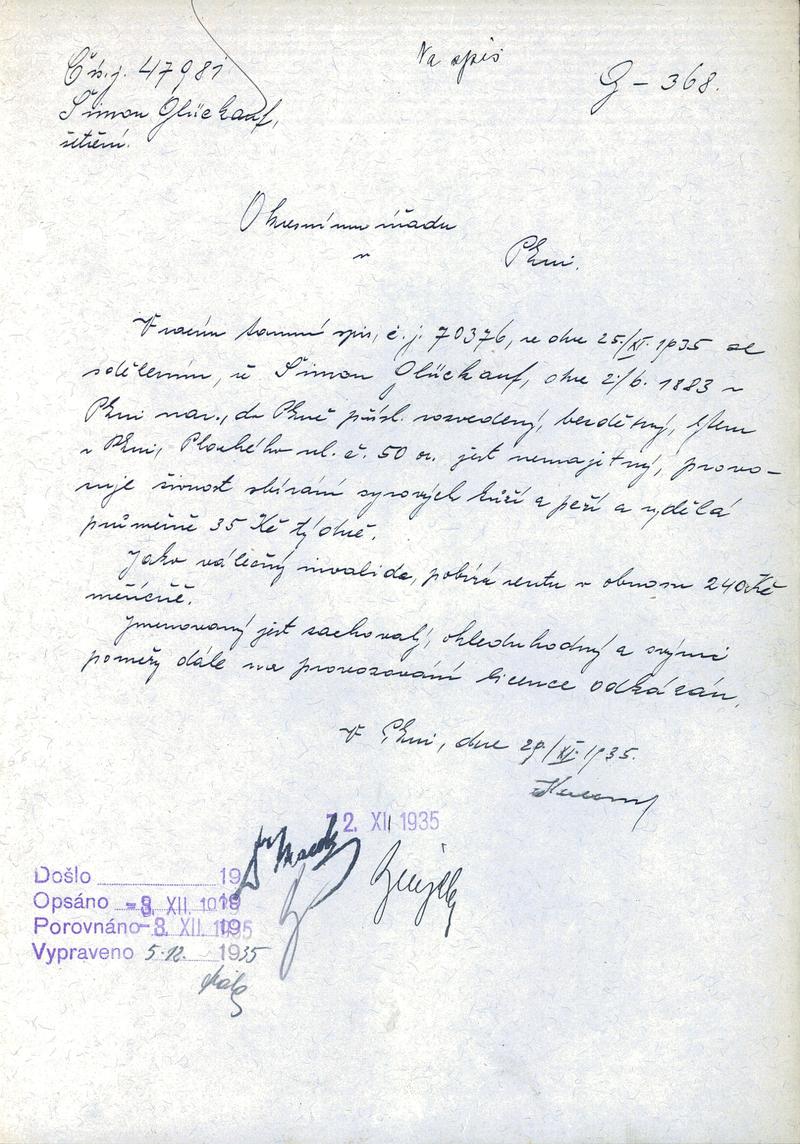 Na spis
Čís. j. 47981
G – 368.
Šimon Glückauf,
šetření.
Okresnímu úřadu
v Plzni.
Vracím tamní spis, č. j. 70376, ze dne 25./XI. 1935 se
sdělením, že Šimon Glückauf, dne 2./6. 1883 v
Plzni nar., do Plzně přísl. rozvedený, bezdětný, bytem
v Plzni, Plachého ul. č. 50 or. jest nemajetný, provo-
zuje živnost sbírání syrových kůží a peří a vydělá
průměrně 35 Kč týdně.
Jako válečný invalida, pobírá rentu v obnosu 240 Kč
měsíčně.
Jmenovaný jest zachovalý, ohleduhodný a svými
poměry dále na provozování licence odkázán.
V Plzni, dne 29./XI. 1935.
2. XII 1935
Došlo 19
Opsáno -3. XII. 1935
Porovnáno -3. XII. 1935
Vypraveno 5.12. 1935